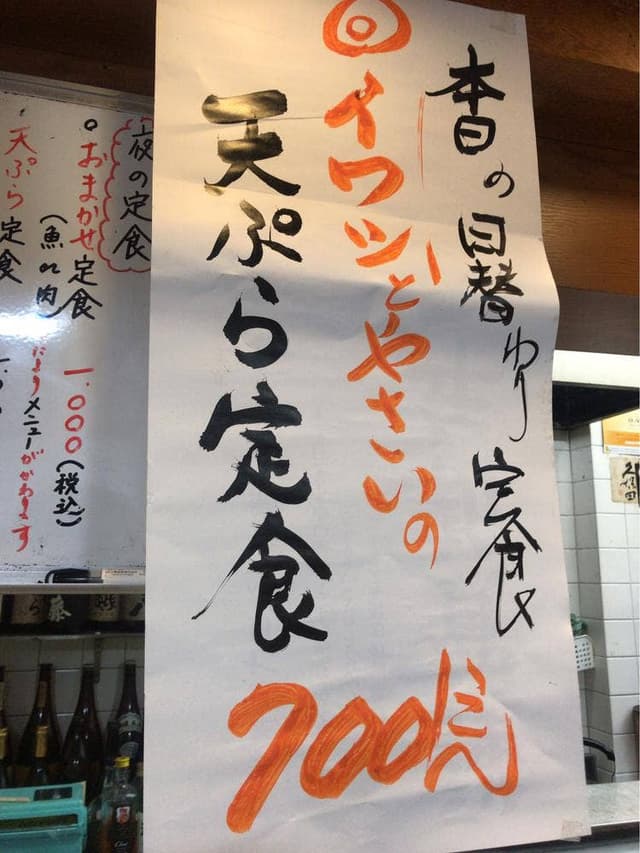 本日の日替り定食
◎イワシとやさいの
天ぷら定食
700えん
夜の定食
○おまかせ定食
(魚or肉)
1.000(税込)
メニューがかわります
天ぷら定食